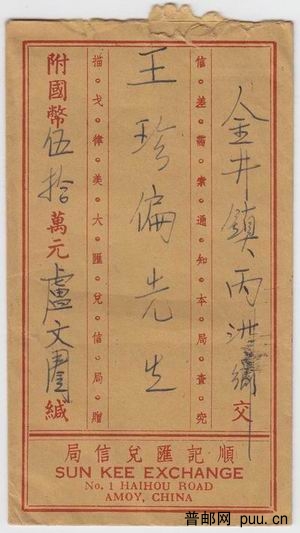 金井鎮丙洲鄉交
信差需索通知本局查究
王珍偏先生
描戈律美大匯兌信局贈
附國幣伍拾萬元盧文緘
順記匯兌信局
SUN KEE EXCHANGE
No. 1 HAIHOU ROAD
AMOY, CHINA
普邮网 puu.cn